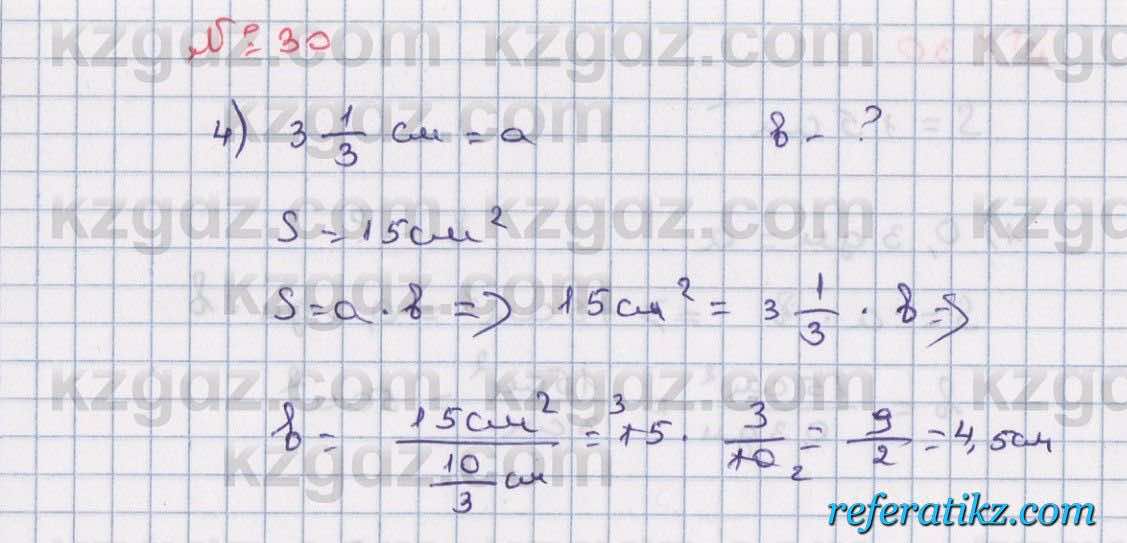 № 30
4) 3 1/3 см = a     b - ?
S = 15см²
S = a · b => 15см² = 3 1/3 · b =>
b = 15см² / (10/3 см) = ³15 · 3/10₂ = 9/2 = 4,5см
kzgdz.com
referatikz.com